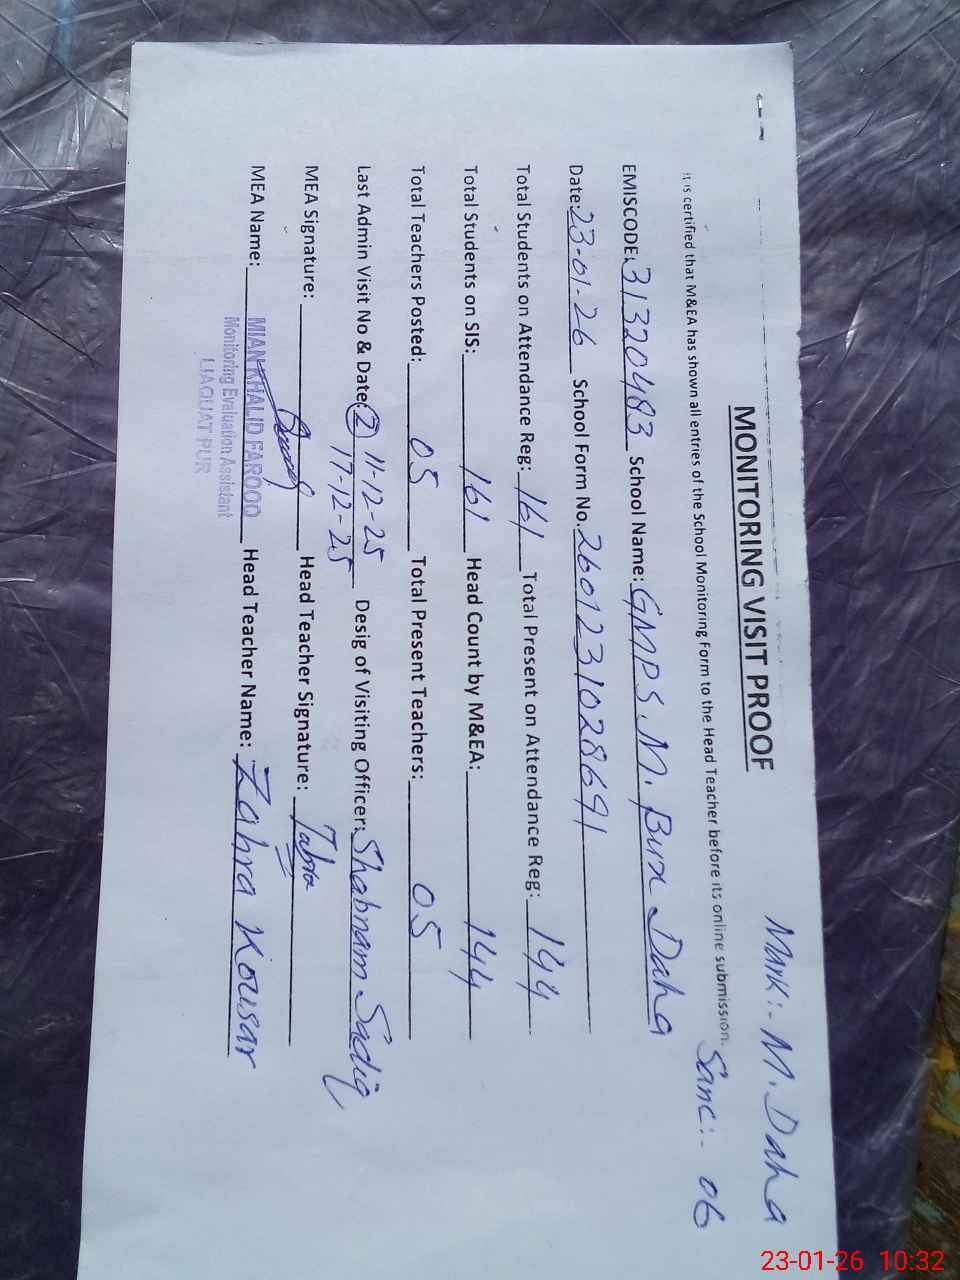 Mark:- M. Daha
MONITORING VISIT PROOF
Sanc:- 06
It is certified that M&EA has shown all entries of the School Monitoring Form to the Head Teacher before its online submission.
EMISCODE: 31320483 School Name: GMPS. M. Bux Daha
Date: 23-01-26 School Form No. 2601231028691
Total Students on Attendance Reg: 161 Total Present on Attendance Reg: 144
Total Students on SIS: 161 Head Count by M&EA: 144
Total Teachers Posted: 05 Total Present Teachers: 05
Last Admin Visit No & Date: 2 11-12-25 Desig of Visiting Officer: Shabnam Sadiq
17-12-25
MEA Signature: Head Teacher Signature:
MEA Name: MIAN KHALID FAROOQ Head Teacher Name: Zahra Kousar
Monitoring Evaluation Assistant
LIAQUAT PUR
23-01-26 10:32